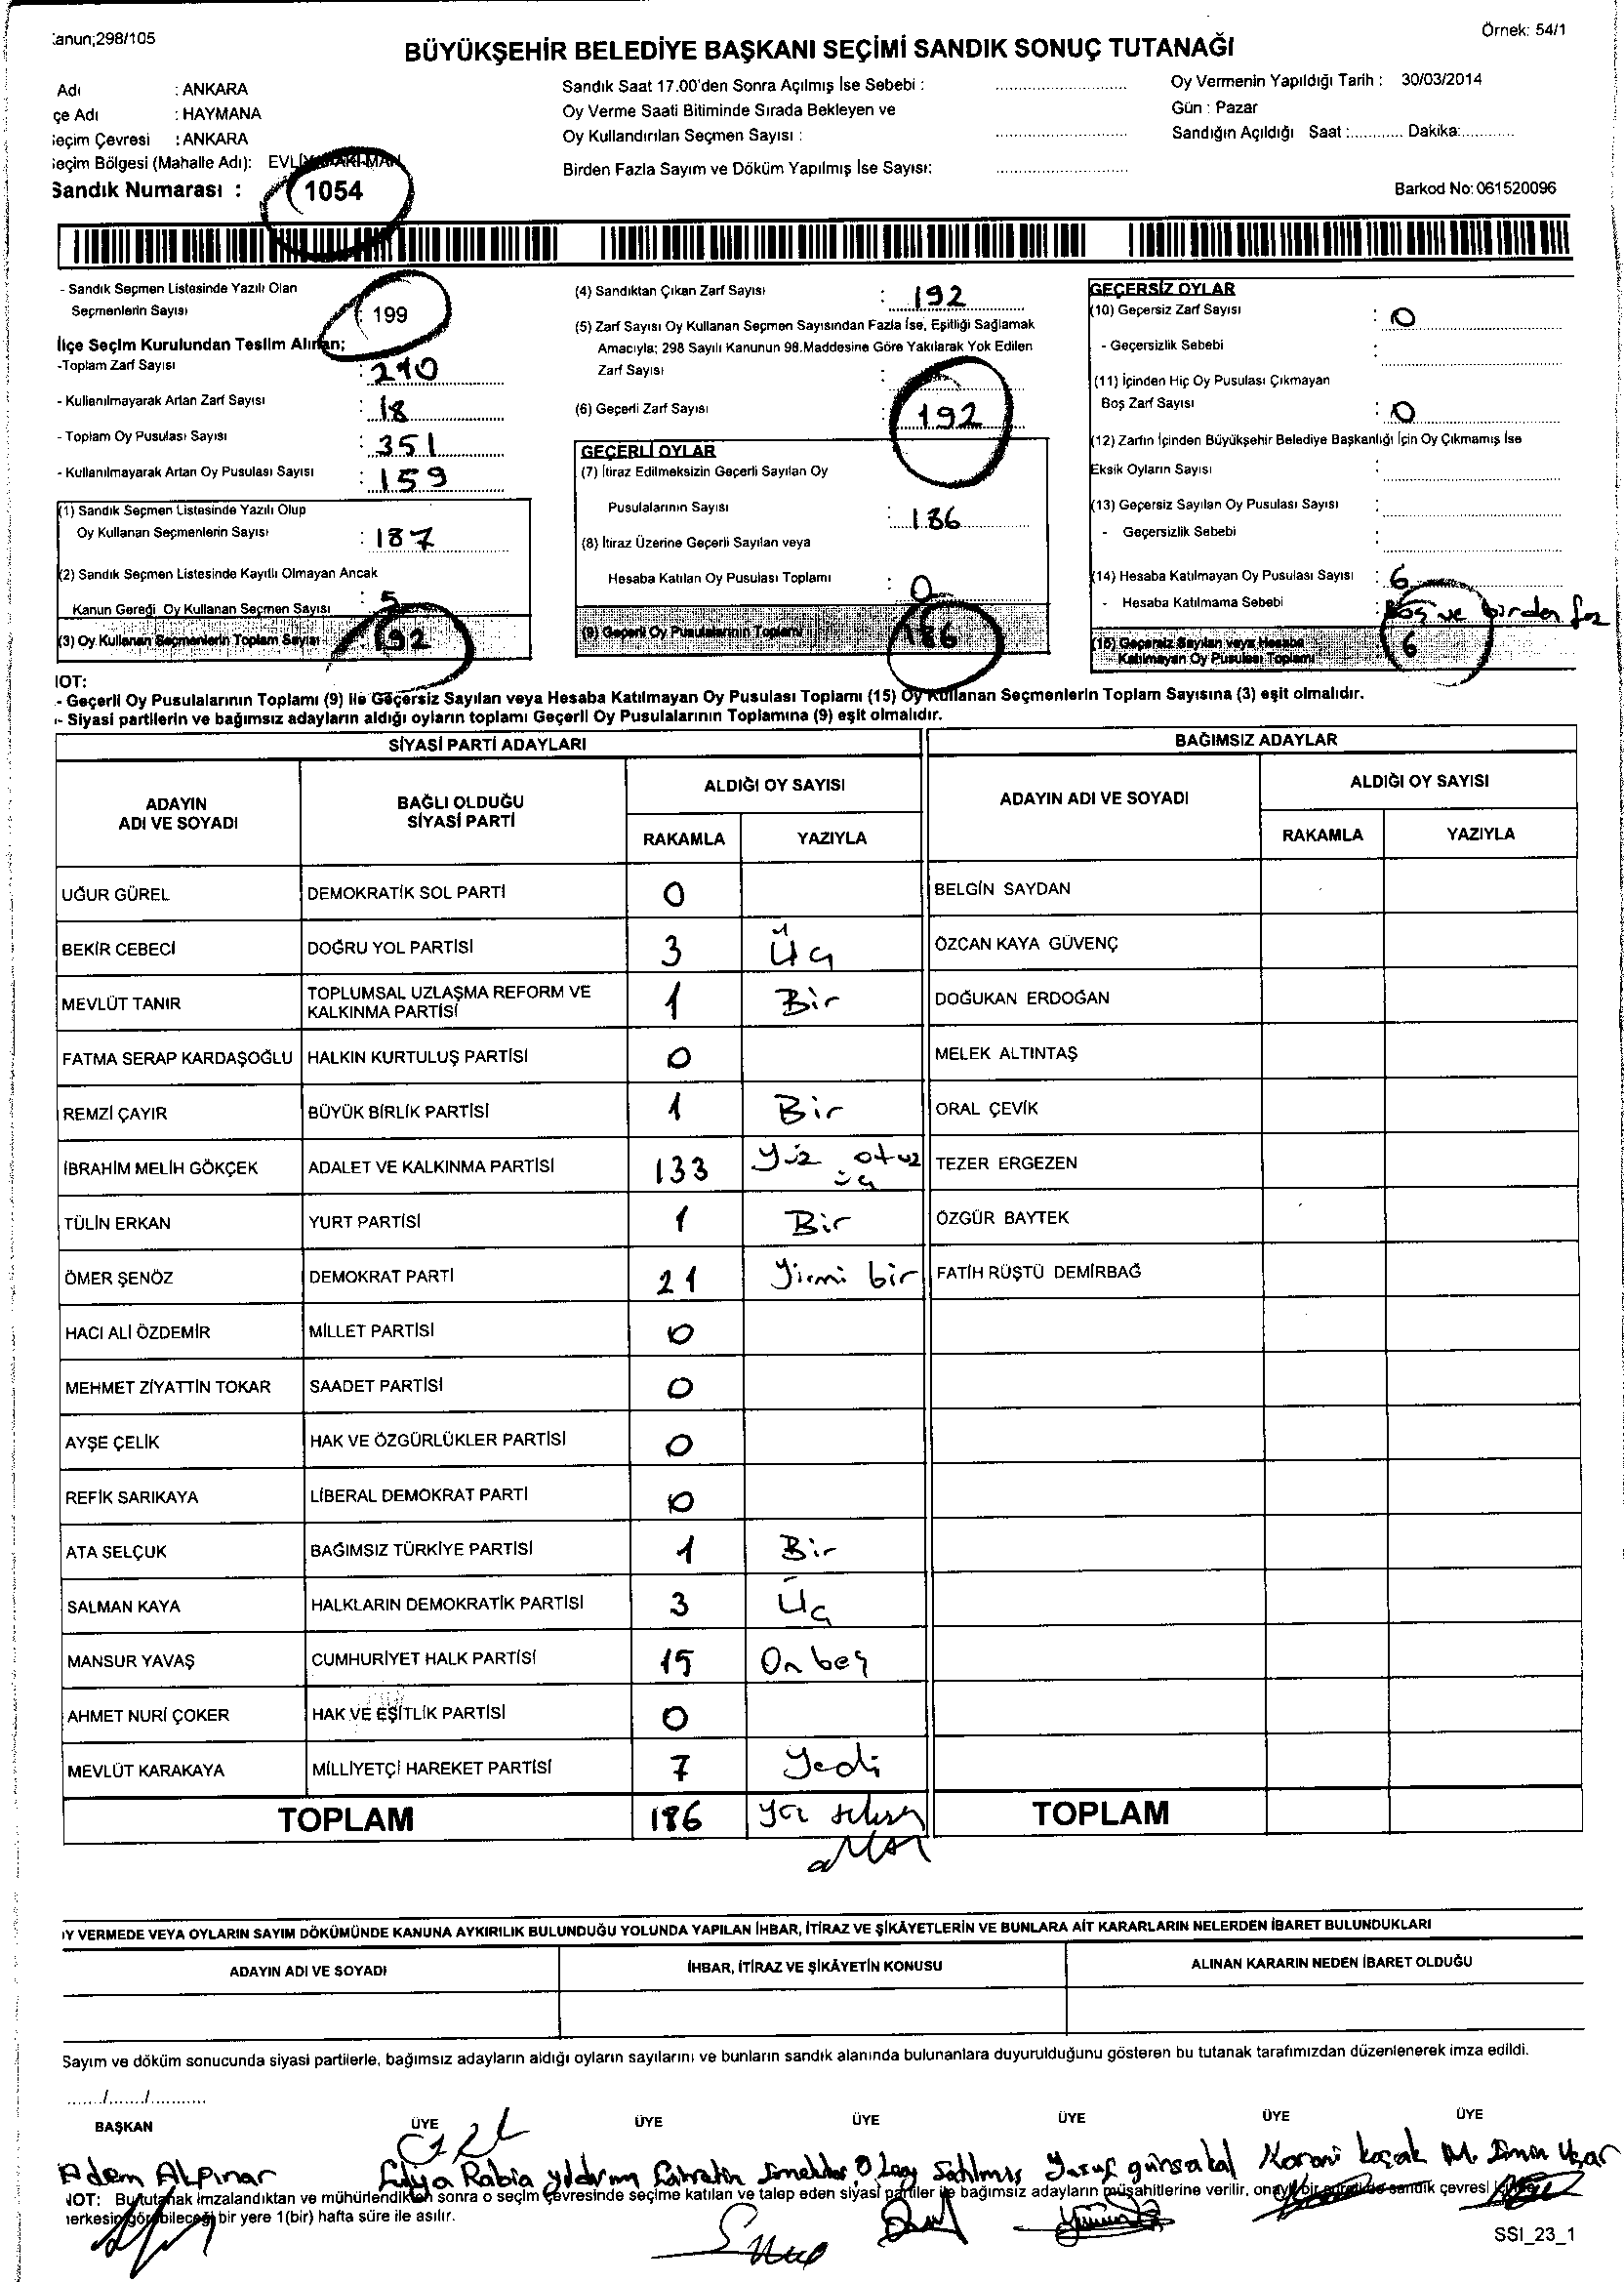 Kanun;298/105
Örnek: 54/1
BÜYÜKŞEHİR BELEDİYE BAŞKANI SEÇİMİ SANDIK SONUÇ TUTANAĞI
Adı : ANKARA
çe Adı : HAYMANA
eçim Çevresi : ANKARA
eçim Bölgesi (Mahalle Adı):
Sandık Numarası : 1054
Sandık Saat 17.00'den Sonra Açılmış İse Sebebi :
Oy Verme Saati Bitiminde Sırada Bekleyen ve
Oy Kullandırılan Seçmen Sayısı :
Birden Fazla Sayım ve Döküm Yapılmış İse Sayısı:
Oy Vermenin Yapıldığı Tarih : 30/03/2014
Gün : Pazar
Sandığın Açıldığı Saat :............ Dakika:............
Barkod No: 061520096
- Sandık Seçmen Listesinde Yazılı Olan
Seçmenlerin Sayısı : 199
İlçe Seçim Kurulundan Teslim Alınan;
-Toplam Zarf Sayısı : 210
- Kullanılmayarak Artan Zarf Sayısı : 18
- Toplam Oy Pusulası Sayısı : 351
- Kullanılmayarak Artan Oy Pusulası Sayısı : 159
(1) Sandık Seçmen Listesinde Yazılı Olup
Oy Kullanan Seçmenlerin Sayısı : 187
(2) Sandık Seçmen Listesinde Kayıtlı Olmayan Ancak
Kanun Gereği Oy Kullanan Seçmen Sayısı : 5
(3) Oy Kullanan Seçmenlerin Toplam Sayısı 192
(4) Sandıktan Çıkan Zarf Sayısı : 192
(5) Zarf Sayısı Oy Kullanan Seçmen Sayısından Fazla İse, Eşitliği Sağlamak
Amacıyla; 298 Sayılı Kanunun 98.Maddesine Göre Yakılarak Yok Edilen
Zarf Sayısı :
(6) Geçerli Zarf Sayısı : 192
GEÇERLİ OYLAR
(7) İtiraz Edilmeksizin Geçerli Sayılan Oy
Pusulalarının Sayısı : 186
(8) İtiraz Üzerine Geçerli Sayılan veya
Hesaba Katılan Oy Pusulası Toplamı : 0
(9) Geçerli Oy Pusulalarının Toplamı 186
GEÇERSİZ OYLAR
(10) Geçersiz Zarf Sayısı : 0
- Geçersizlik Sebebi :
(11) İçinden Hiç Oy Pusulası Çıkmayan
Boş Zarf Sayısı : 0
(12) Zarfın İçinden Büyükşehir Belediye Başkanlığı İçin Oy Çıkmamış İse
Eksik Oyların Sayısı :
(13) Geçersiz Sayılan Oy Pusulası Sayısı :
- Geçersizlik Sebebi :
(14) Hesaba Katılmayan Oy Pusulası Sayısı : 6
- Hesaba Katılmama Sebebi : Boş ve birden faz
(15) Geçersiz Sayılan veya Hesaba
Katılmayan Oy Pusulası Toplamı 6
NOT:
- Geçerli Oy Pusulalarının Toplamı (9) ile Geçersiz Sayılan veya Hesaba Katılmayan Oy Pusulası Toplamı (15) Oy Kullanan Seçmenlerin Toplam Sayısına (3) eşit olmalıdır.
- Siyasi partilerin ve bağımsız adayların aldığı oyların toplamı Geçerli Oy Pusulalarının Toplamına (9) eşit olmalıdır.
SİYASİ PARTİ ADAYLARI
BAĞIMSIZ ADAYLAR
ADAYIN ADI VE SOYADI
BAĞLI OLDUĞU SİYASİ PARTİ
ALDIĞI OY SAYISI
RAKAMLA YAZIYLA
ADAYIN ADI VE SOYADI
ALDIĞI OY SAYISI
RAKAMLA YAZIYLA
UĞUR GÜREL DEMOKRATİK SOL PARTİ 0 BELGİN SAYDAN
BEKİR CEBECİ DOĞRU YOL PARTİSİ 3 Üç ÖZCAN KAYA GÜVENÇ
MEVLÜT TANIR TOPLUMSAL UZLAŞMA REFORM VE KALKINMA PARTİSİ 1 Bir DOĞUKAN ERDOĞAN
FATMA SERAP KARDAŞOĞLU HALKIN KURTULUŞ PARTİSİ 0 MELEK ALTINTAŞ
REMZİ ÇAYIR BÜYÜK BİRLİK PARTİSİ 1 Bir ORAL ÇEVİK
İBRAHİM MELİH GÖKÇEK ADALET VE KALKINMA PARTİSİ 133 Yüz otuz üç TEZER ERGEZEN
TÜLİN ERKAN YURT PARTİSİ 1 Bir ÖZGÜR BAYTEK
ÖMER ŞENÖZ DEMOKRAT PARTİ 21 Yirmi bir FATİH RÜŞTÜ DEMİRBAĞ
HACI ALİ ÖZDEMİR MİLLET PARTİSİ 0
MEHMET ZİYATTİN TOKAR SAADET PARTİSİ 0
AYŞE ÇELİK HAK VE ÖZGÜRLÜKLER PARTİSİ 0
REFİK SARIKAYA LİBERAL DEMOKRAT PARTİ 0
ATA SELÇUK BAĞIMSIZ TÜRKİYE PARTİSİ 1 Bir
SALMAN KAYA HALKLARIN DEMOKRATİK PARTİSİ 3 Üç
MANSUR YAVAŞ CUMHURİYET HALK PARTİSİ 15 On beş
AHMET NURİ ÇOKER HAK VE EŞİTLİK PARTİSİ 0
MEVLÜT KARAKAYA MİLLİYETÇİ HAREKET PARTİSİ 7 Yedi
TOPLAM 186 Yüz seksen altı TOPLAM
OY VERMEDE VEYA OYLARIN SAYIM DÖKÜMÜNDE KANUNA AYKIRILIK BULUNDUĞU YOLUNDA YAPILAN İHBAR, İTİRAZ VE ŞİKÂYETLERİN VE BUNLARA AİT KARARLARIN NELERDEN İBARET BULUNDUKLARI
ADAYIN ADI VE SOYADI İHBAR, İTİRAZ VE ŞİKÂYETİN KONUSU ALINAN KARARIN NEDEN İBARET OLDUĞU
Sayım ve döküm sonucunda siyasi partilerle, bağımsız adayların aldığı oyların sayılarını ve bunların sandık alanında bulunanlara duyurulduğunu gösteren bu tutanak tarafımızdan düzenlenerek imza edildi.
....../....../............
BAŞKAN ÜYE ÜYE ÜYE ÜYE ÜYE ÜYE
Adem Alpınar Rabia Yıldırım Satılmış Yusuf gürsakal koçak M. Emin Uçar
NOT: Bu tutanak imzalandıktan ve mühürlendikten sonra o seçim çevresinde seçime katılan ve talep eden siyasi partiler ile bağımsız adayların müşahitlerine verilir, sandık çevresi
herkesin görebileceği bir yere 1(bir) hafta süre ile asılır.
SSI_23_1